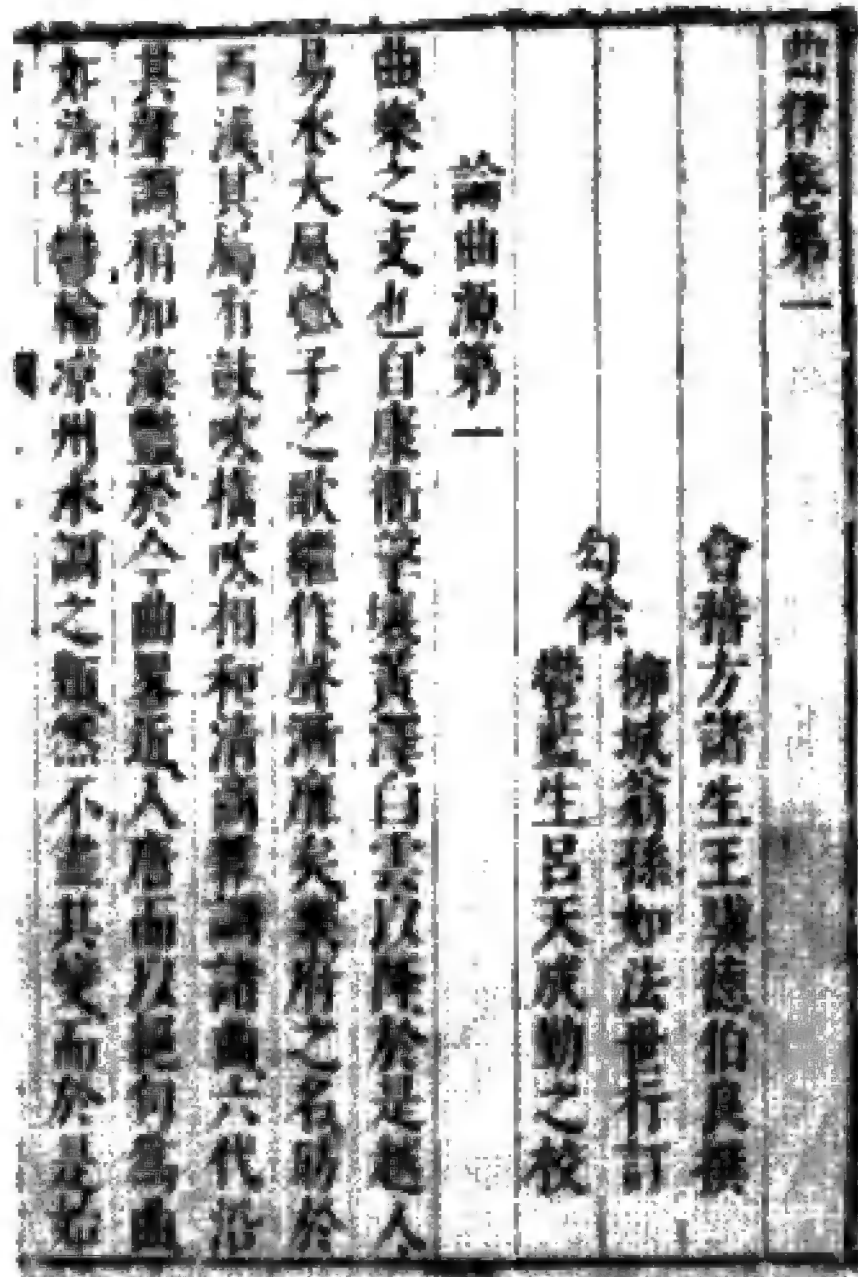 曲律卷第一
會稽方諸生王驥德伯良撰
勾餘
柳城翁孫如法世行訂
鬱藍生呂天成勤之校
論曲源第一
曲樂之支也自康衢擊壤黃澤白雲以降於是越人
易水大風瓠子之歌繼作聲漸靡矣樂府之名昉於
西漢其屬有鼓吹橫吹相和清商雜調諸曲六代沿
其聲調稍加藻豔於今曲畧近入唐而以絕句為曲
如清平鬱輪凉州水調之類然不盡其變而於是始